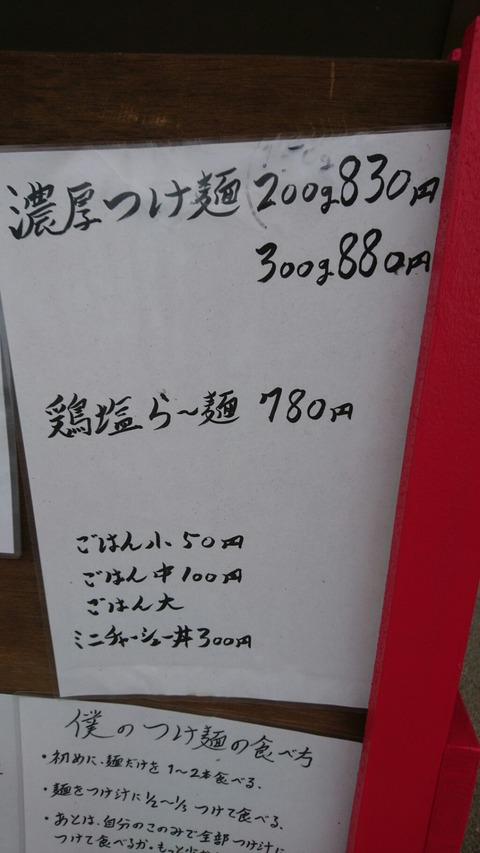 濃厚つけ麺 200g 830円
300g 880円
鶏塩ら〜麺 780円
ごはん小 50円
ごはん中 100円
ごはん大
ミニチャーシュー丼 300円
僕のつけ麺の食べ方
・初めに、麺だけを1〜2本食べる、
・麺をつけ汁に1/2〜1/3つけて食べる、
・あとは、自分のこのみで全部つけ汁に
つけて食べるか、もっと